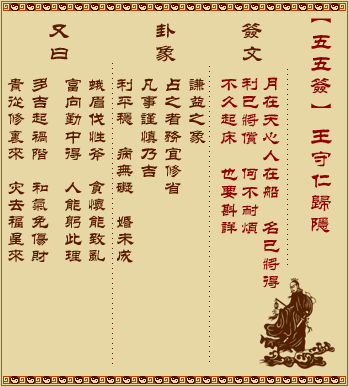 【五五簽】 王守仁歸隱
簽文
月在天心人在船 名已將得
利已將償 何不耐煩
不久起床 也要斟詳
卦象
謙益之象
占之者務宜修省
凡事謹慎乃吉
利平穩 病無礙 婚未成
又曰
蛾眉伐性斧 貪懷能致亂
富向勤中得 人能躬此理
多吉起禍階 和氣免傷財
貴從修裏來 灾去福星來